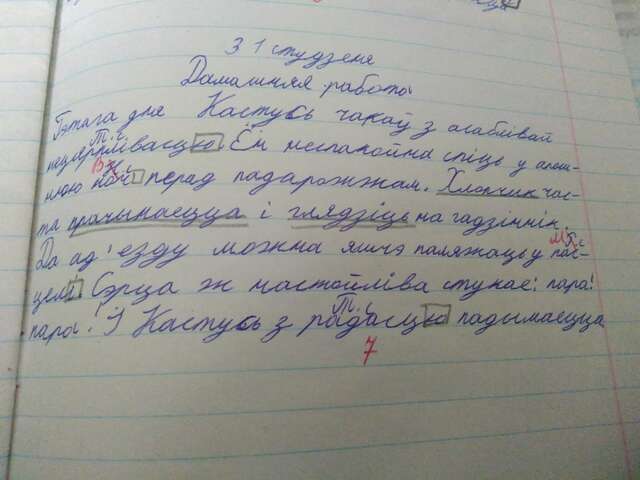 З 1 студзеня
Дамашняя работа
Гэтага дня Кастусь чакаў з асаблівай
Т. с
нецярплівасцю. Ён неспакойна спіць у апош-
В. с
нюю ноч перад падарожжам. Хлопчик час-
та прачынаецца і глядзіць на гадзіннік.
М. с
Да ад'езду можна яшчэ паляжаць у пас-
целі. Сэрца ж настойліва стукае: пара!
Т. с
пара! І Кастусь з радасцю падымаецца
7